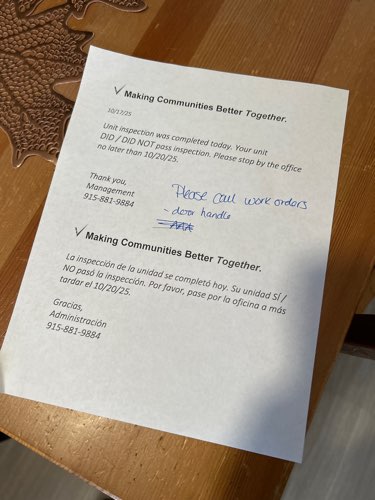 ✓ Making Communities Better Together.
10/17/25
Unit inspection was completed today. Your unit
DID / DID NOT pass inspection. Please stop by the office
no later than 10/20/25.
Thank you,
Management
915-881-9884
Please call work orders
- door handle
✓ Making Communities Better Together.
La inspección de la unidad se completó hoy. Su unidad SÍ /
NO pasó la inspección. Por favor, pase por la oficina a más
tardar el 10/20/25.
Gracias,
Administración
915-881-9884